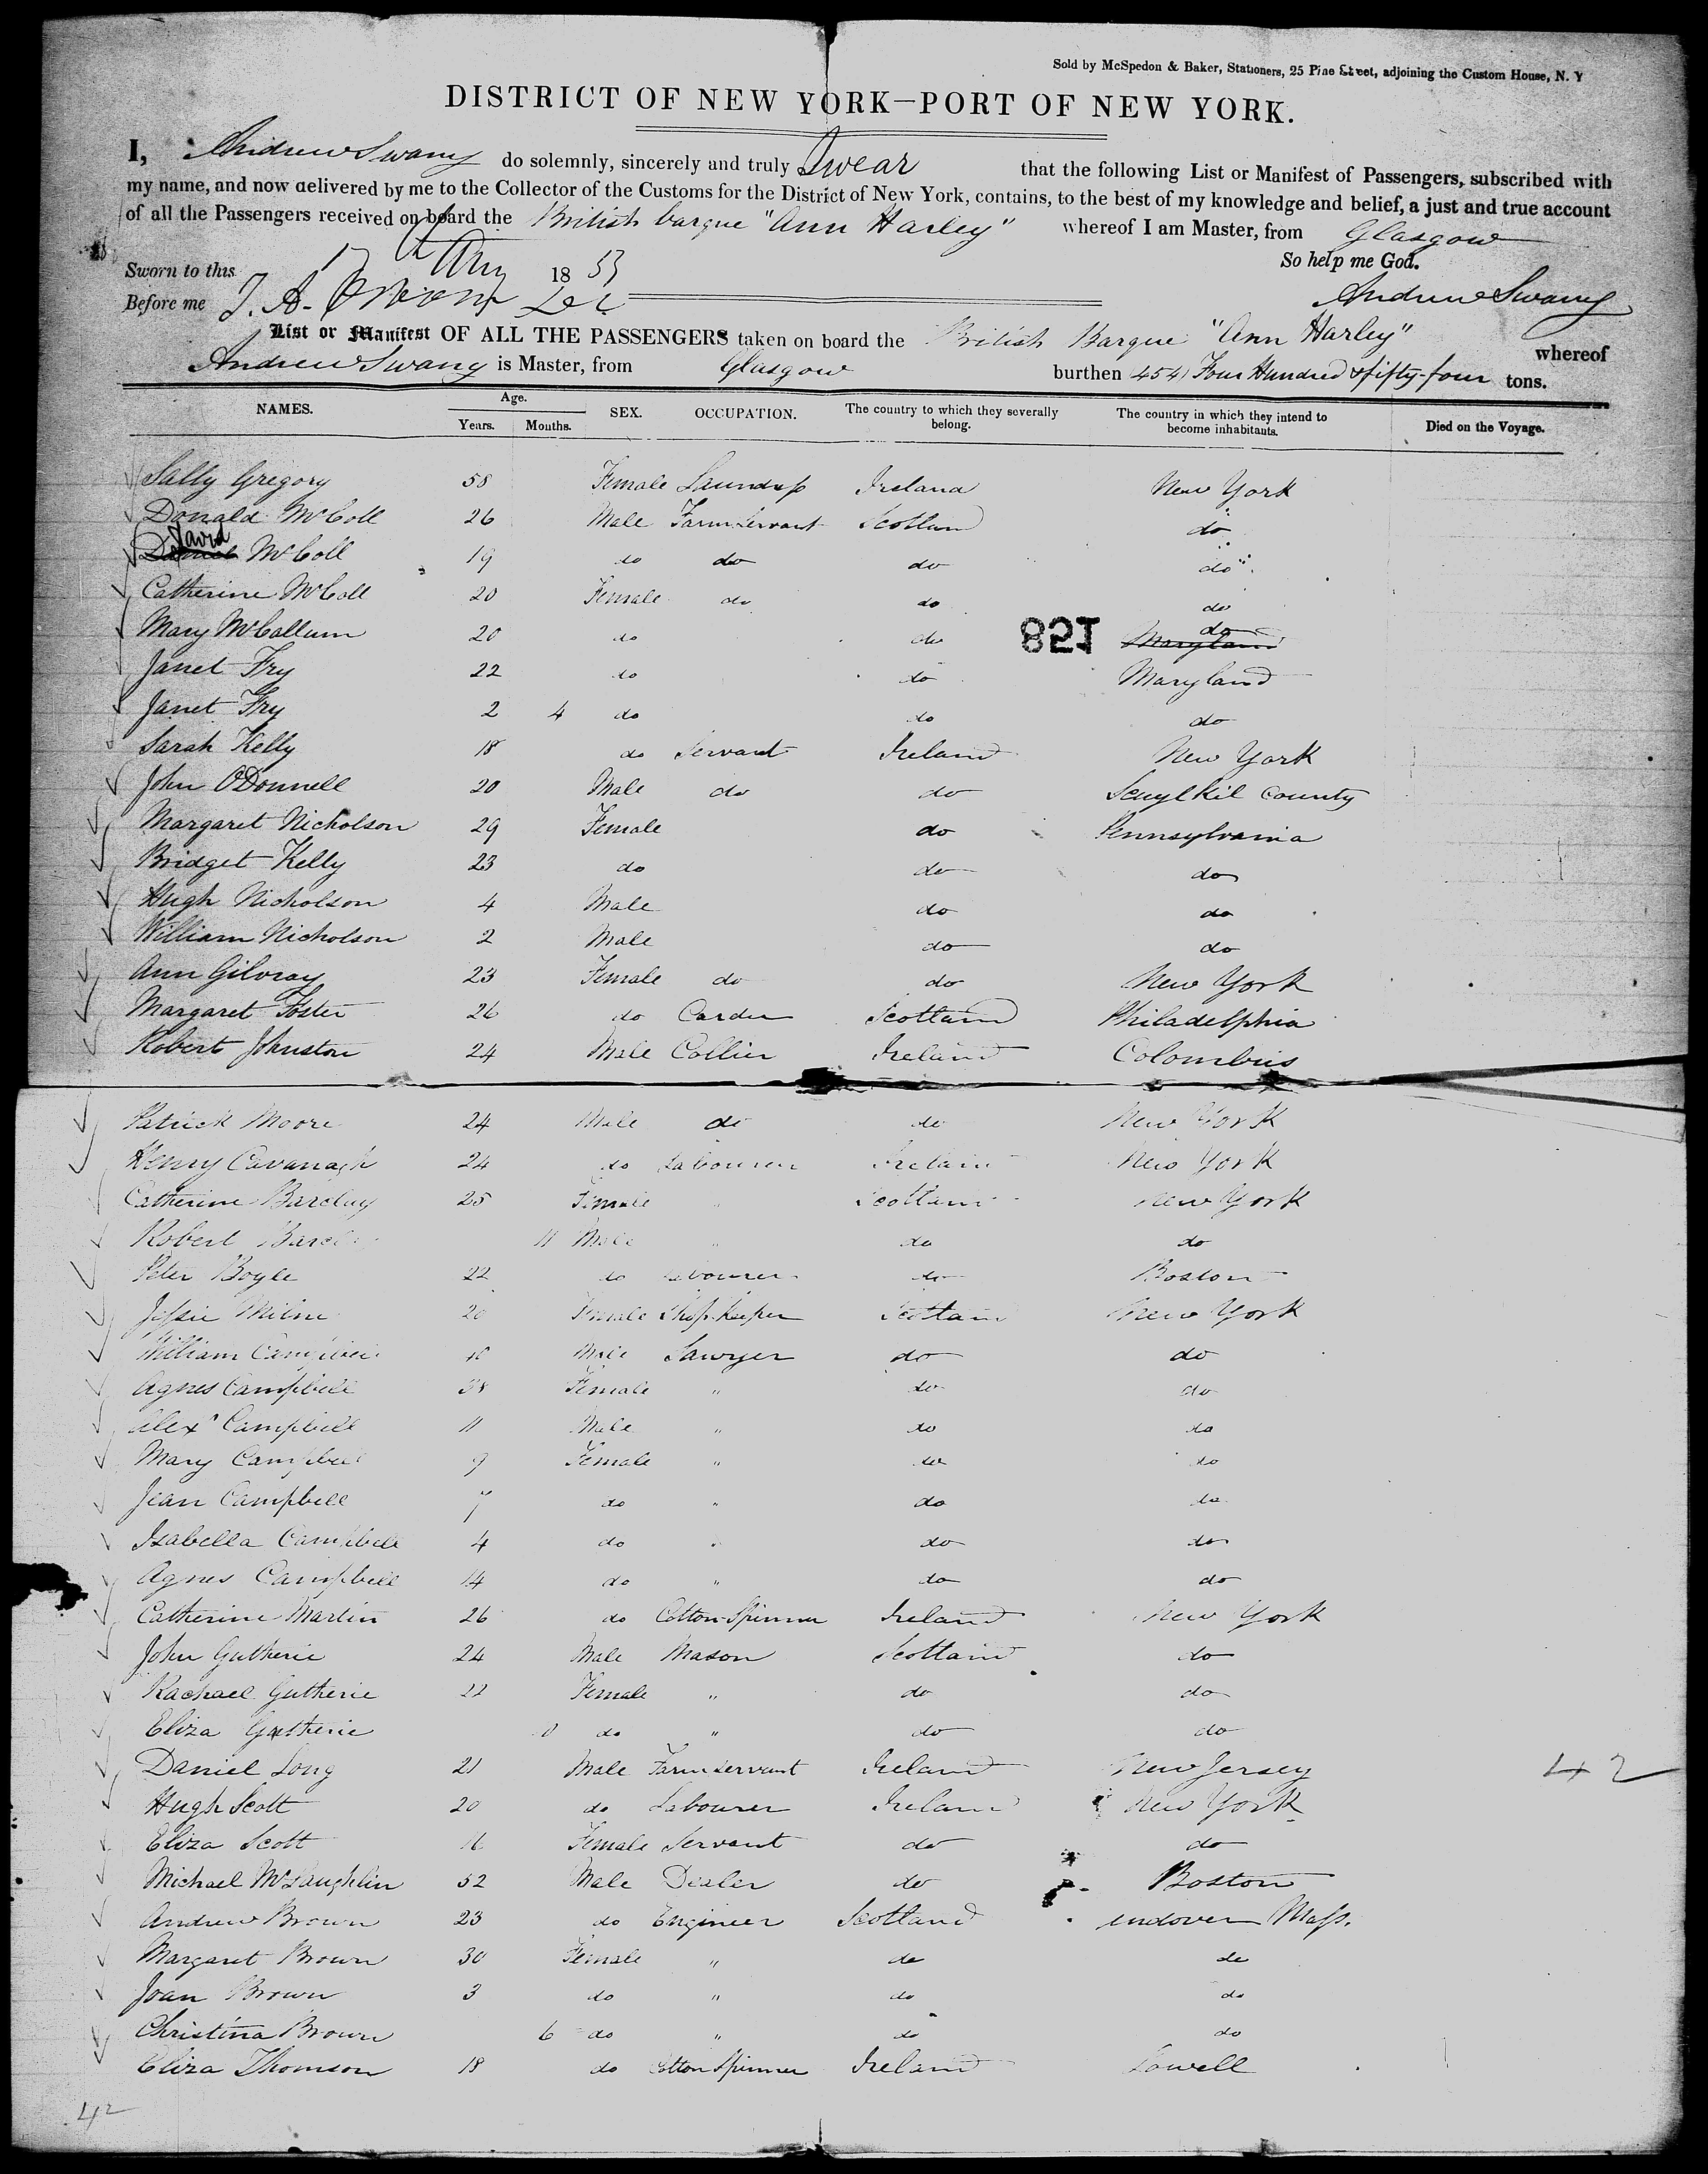 Sold by McSpedon & Baker, Stationers, 25 Pine Street, adjoining the Custom House, N. Y
DISTRICT OF NEW YORK—PORT OF NEW YORK.
I, Andrew Swany do solemnly, sincerely and truly Swear that the following List or Manifest of Passengers, subscribed with
my name, and now delivered by me to the Collector of the Customs for the District of New York, contains, to the best of my knowledge and belief, a just and true account
of all the Passengers received on board the British barque "Ann Harley" whereof I am Master, from Glasgow
So help me God.
Sworn to this 17 Aug 1853
Before me Andrew Swany
List or Manifest OF ALL THE PASSENGERS taken on board the British Barque "Ann Harley" whereof
Andrew Swany is Master, from Glasgow burthen (454) Four Hundred & fifty-four tons.
NAMES. Age. Years. Months. SEX. OCCUPATION. The country to which they severally belong. The country in which they intend to become inhabitants. Died on the Voyage.
Sally Gregory 58 Female Laundress Ireland New York
Donald McColl 26 Male Farm Servant Scotland do
David McColl 19 do do do do
Catherine McColl 20 Female do do do
Mary McCallum 20 do do Maryland do
821
Janet Fry 22 do do Maryland
Janet Fry 2 4 do do do
Sarah Kelly 18 do Servant Ireland New York
John O'Donnell 20 Male do do Scuylkil County
Margaret Nicholson 29 Female do Pennsylvania
Bridget Kelly 23 do do do
Hugh Nicholson 4 Male do do
William Nicholson 2 Male do do
Ann Gilvray 23 Female do do New York
Margaret Foster 26 do Carder Scotland Philadelphia
Robert Johnston 24 Male Collier Ireland Colombus
Patrick Moore 24 Male do do New York
Henry Cavanagh 24 do Labourer Ireland New York
Catherine Barclay 25 Female Scotland New York
Robert Barclay 11 Male " do do
Peter Boyle 22 do Labourer do Boston
Jessie Milne 20 Female Shop Keeper Scotland New York
William Campbell 40 Male Sawyer do do
Agnes Campbell 38 Female " do do
Alexr Campbell 11 Male " do do
Mary Campbell 9 Female " do do
Jean Campbell 7 do " do do
Isabella Campbell 4 do " do do
Agnes Campbell 14 do " do do
Catherine Martin 26 do Cotton Spinner Ireland New York
John Gutherie 24 Male Mason Scotland do
Rachael Gutherie 22 Female " do do
Eliza Gutherie do " do do
Daniel Long 21 Male Farm servant Ireland New Jersey
42
Hugh Scott 20 do Labourer Ireland New York
Eliza Scott 16 Female Servant do do
Michael McLaughlin 52 Male Dealer do Boston
Andrew Brown 23 do Engineer Scotland endover Mass.
Margaret Brown 30 Female " do do
Joan Brown 3 do " do do
Christina Brown 6 do " do do
Eliza Thomson 18 do Cotton Spinner Ireland Lowell
42